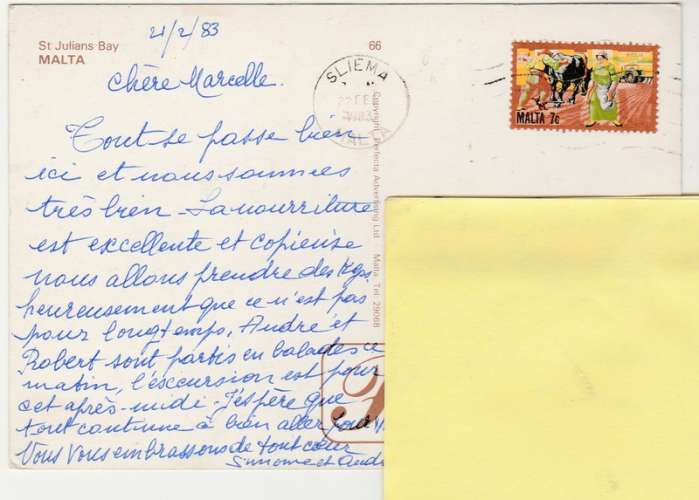 St Julians Bay
MALTA
21/2/83
66
SLIEMA
MALTA
MALTA 7c
Copyright Perfecta Advertising Ltd Malta Tel: 29068
Chère Marcelle.
Tout se passe bien
ici et nous sommes
très bien. La nourriture
est excellente et copieuse
nous allons prendre des Kgs.
heureusement que ce n'est pas
pour longtemps, André et
Robert sont partis en balades ce
matin, l'excursion est pour
cet après-midi. J'espère que
tout continue à bien aller pour
Vous Vous embrassons de tout cœur
Simone et André